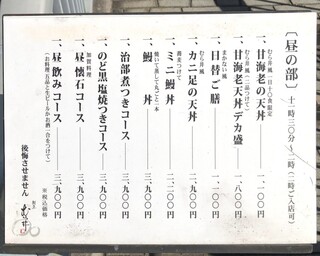 〔昼の部〕 十一時三〇分〜一時(一時ご入店可)
むら井風 一日十〇食限定
一、甘海老の天丼 一、一〇〇円
むら井風(二品つけて)
一、甘海老天丼デカ盛 一、八〇〇円
まかない風
一、日替ご膳 一、一〇〇円
むら井風
一、カニ足の天丼 一、九〇〇円
蕎麦つけて
一、ミニ鰻丼 二、二〇〇円
焼いて蒸して丸ごと一本
一、鰻丼 三、九〇〇円
一、治部煮つきコース 三、九〇〇円
一、のど黒塩焼つきコース 三、九〇〇円
加賀料理
一、昼懐石コース 三、九〇〇円
一、昼飲みコース 三、九〇〇円
(お料理五品と生ビールかお酒一合をつけて)
※税込価格
後悔させません